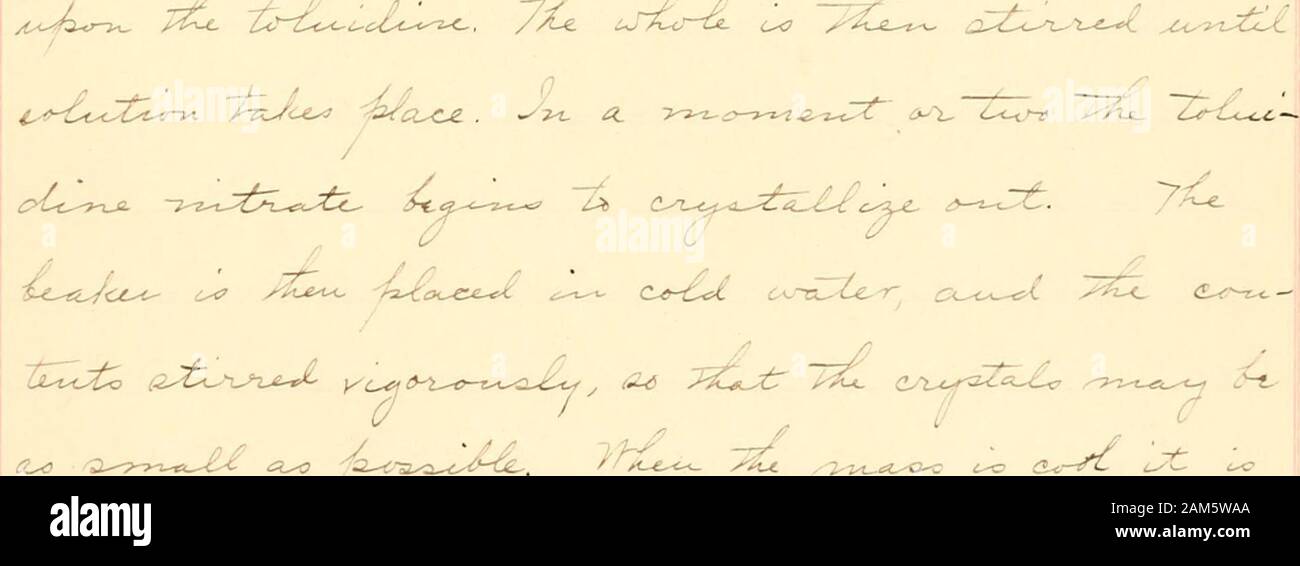 upon the toluidine. The whole is then stirred until
solution takes place. In a moment or two the tolui-
dine nitrate begins to crystallize out. The
beaker is then placed in cold water, and the con-
tents stirred vigorously, so that the crystals may be
as small as possible. When the mass is cool it is
alamy
Image ID: 2AM5WAA
www.alamy.com